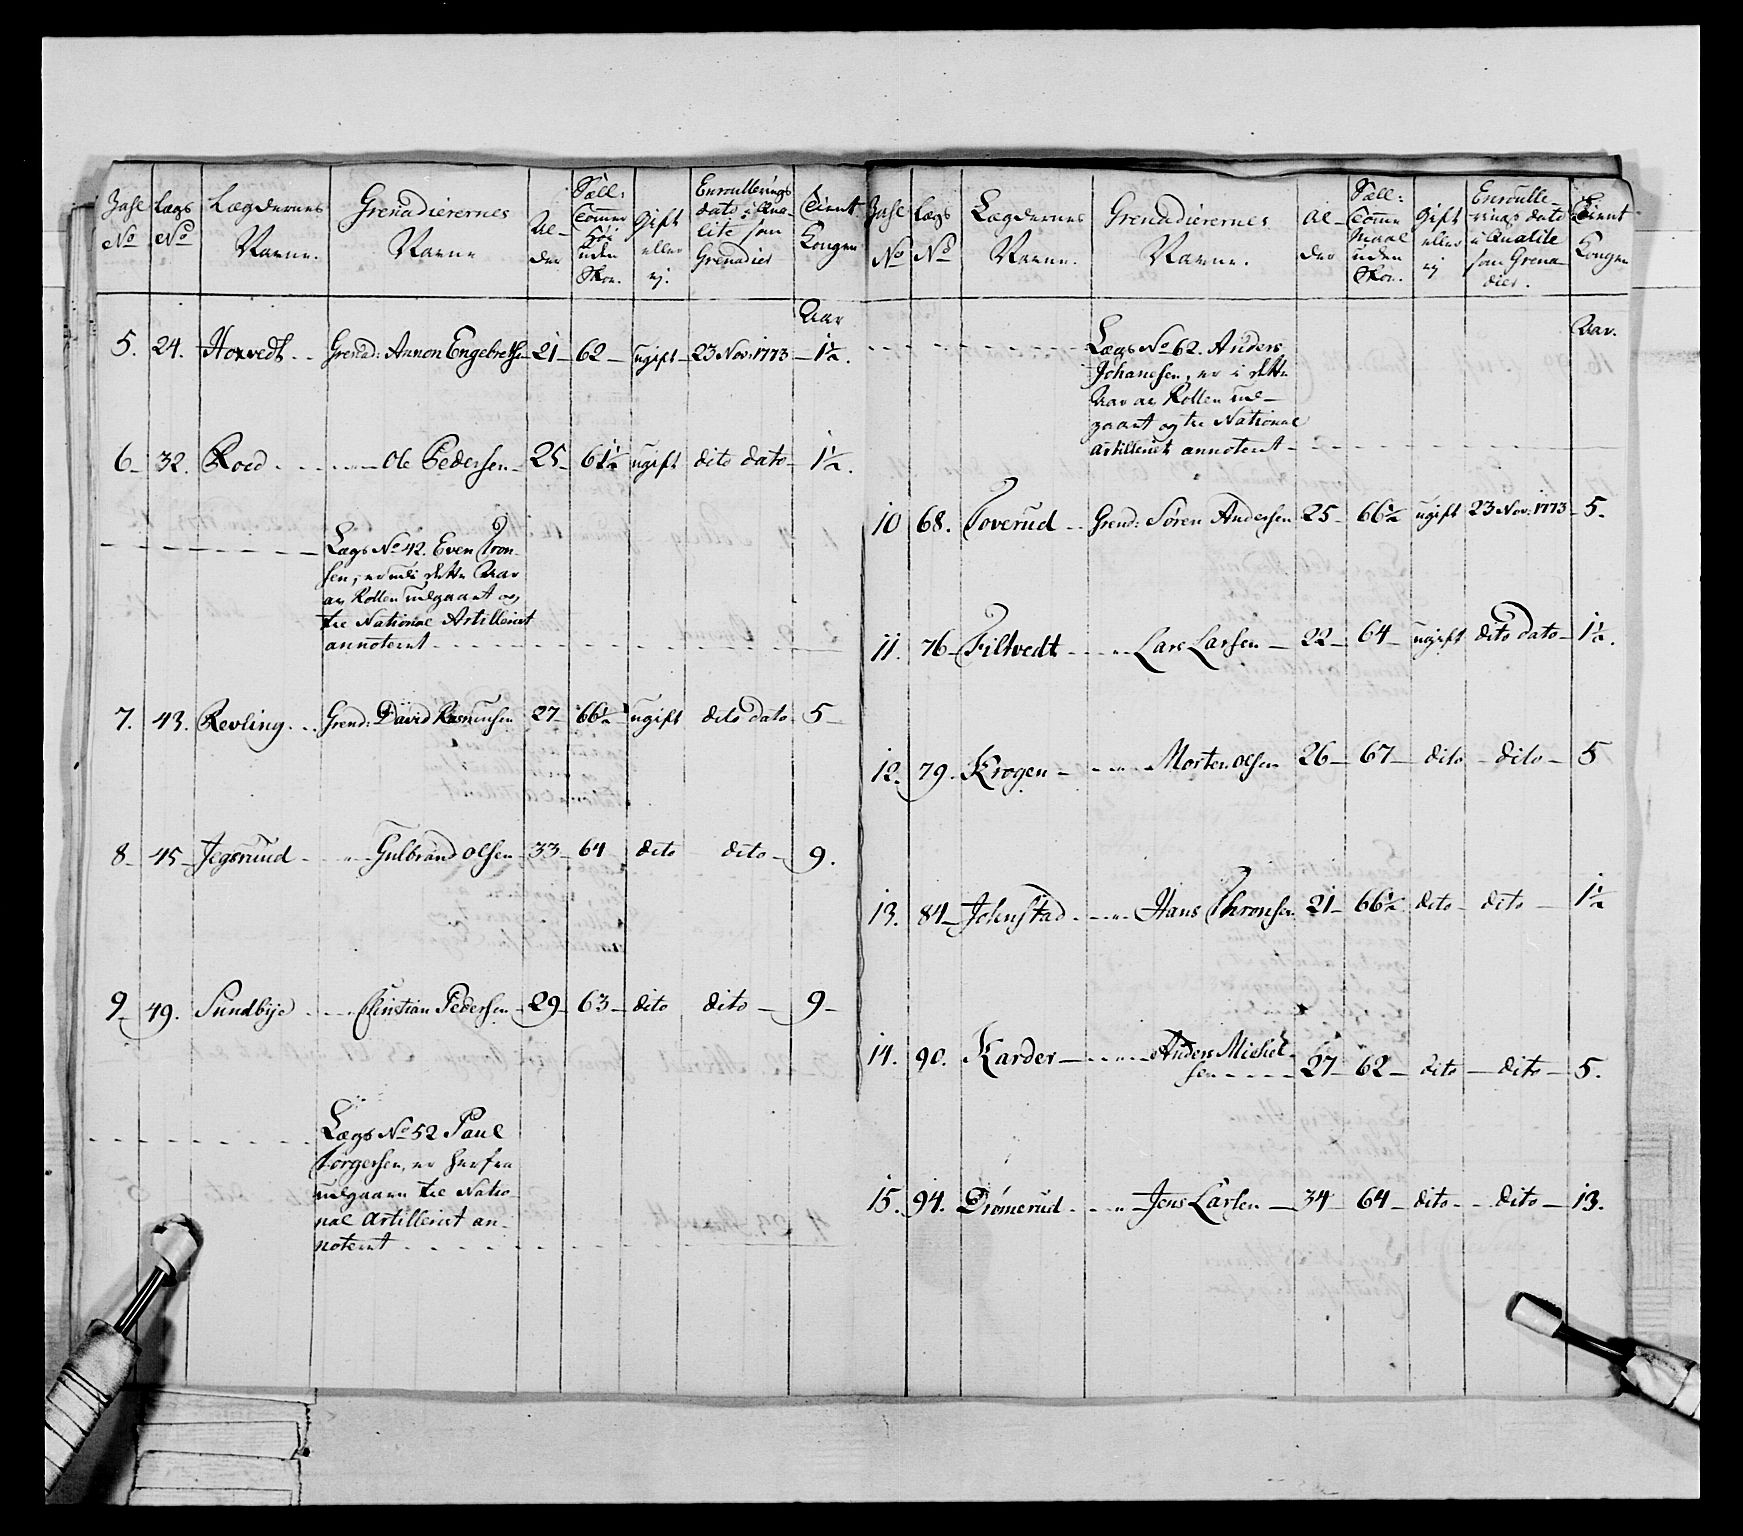 No
Lægs No
Lægdernes Navne.
Grenadierernes Navne
Al-
der
Tomme
Høi
uden
Skoe.
Gift
eller
ej.
Enroullerings
dato i Qua-
lite som
Grenadier
Tient
Kongen
Aar
5. 24. Hoxvedt. . Grenad: Annon Engebretsen 21 62 ugift 23 Nov: 1773 1½.
6 32. Roed . . . . . Ole Pedersen 25 61½ ugift dito dato 1½.
Lægs No 42. Even Tron-
sen, er udi dette Aar
av Rollen udgaaet og
til National Artilleriet
annoteret
7. 43. Revling . . Grend: David Rasmusen 27 66½ ugift dito dato 5
8 45 Jegsruud Gulbrand Olsen 33 64 dito dito 9.
9 49. Sundbye Christian Pedersen 29 63 dito dito 9
Lægs No 52 Paul
Torgersen, er herfra
udgaaen til Natio-
nal Artilleriet an-
noteret
No
Lægs No
Lægdernes Navne.
Grenadierernes Navne.
Al-
der
Tomme
Maal
uden
Skoe.
Gift
eller
ej
Enroulle-
rings dato
i Qualite
som Grena-
dier.
Tient
Kongen
Aar.
Lægs No 62. Anders
Johanesen, er i dette
Aar av Rollen ud-
gaaet og til National
Artilleriet annoteret
10 68. Toverud . . Grend: Søren Andersen 25 66½ ugift 23 Nov: 1773 5.
11. 76 Filtvedt Lars Larsen 22 64 ugift dito dato 1½.
12. 79. Krogen Morten Olsen 26 67 dito dito 5
13. 84 Johnstad Hans Thronsen 21 66½ dito dito 1½
14. 90. Karder Anders Michel-
sen 27 62 dito dito 5.
15. 94. Drømerud Jens Larsen 34 64 dito dito 13.